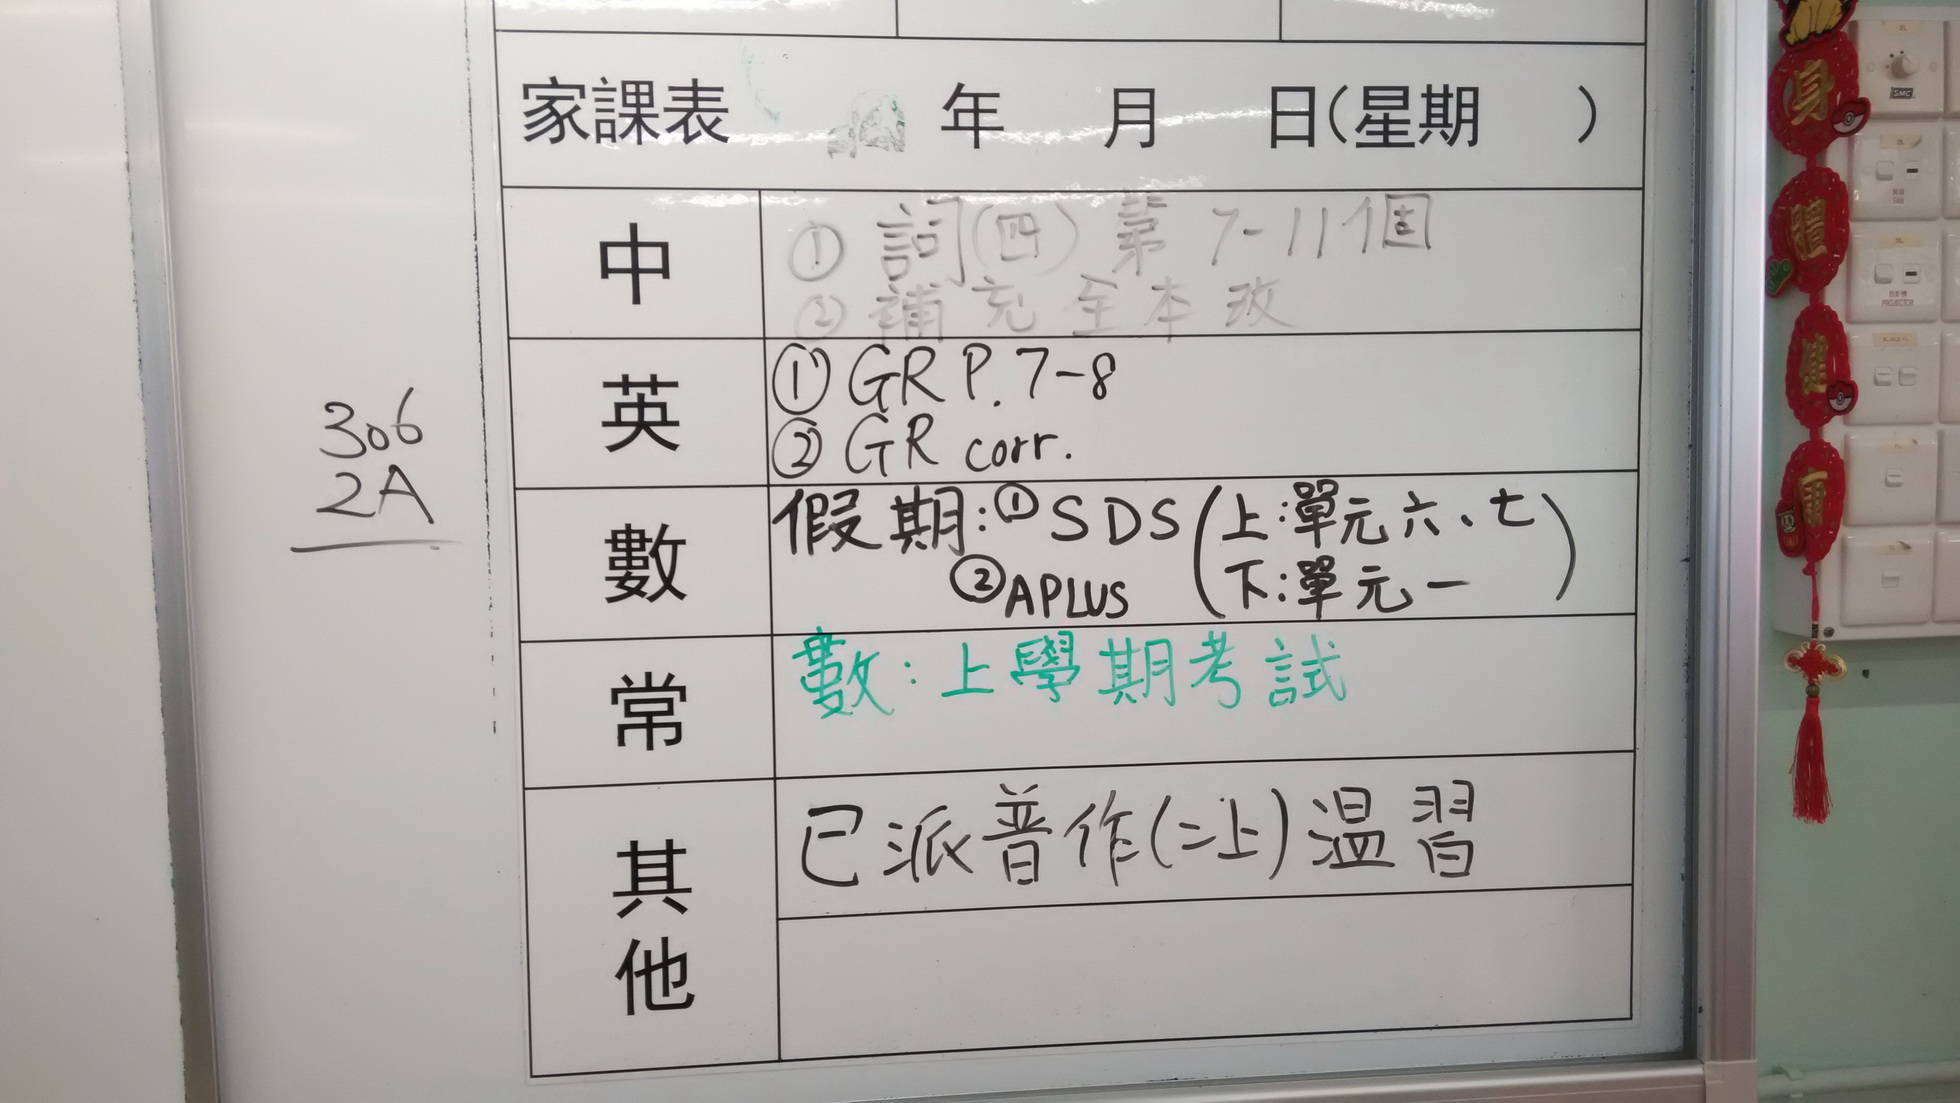 家課表 年 月 日(星期 )
中
① 詞(四) 第 7-11個
② 補充 全本改
英
① GR P. 7-8
② GR corr.
數
假期: ① SDS (上:單元六、七
② APLUS 下:單元一)
常
數: 上學期考試
其他
已派普作(二上)溫習
306
2A
身體健
SMC
FAN
PROJECTOR